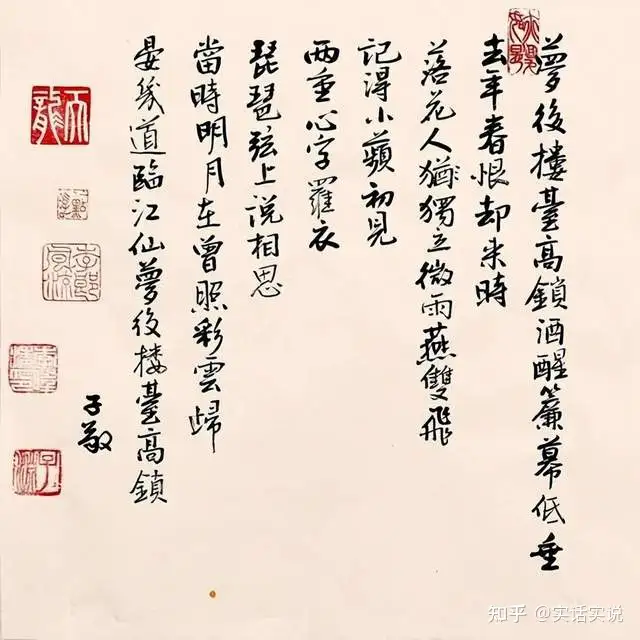 夢後樓臺高鎖酒醒簾幕低垂
去年春恨却来時
落花人猶獨立微雨燕雙飛
記得小蘋初見
两重心字羅衣
琵琶弦上说相思
當時明月在曾照彩雲歸
晏幾道臨江仙夢後楼臺高鎖
子敬
知乎 @实话实说